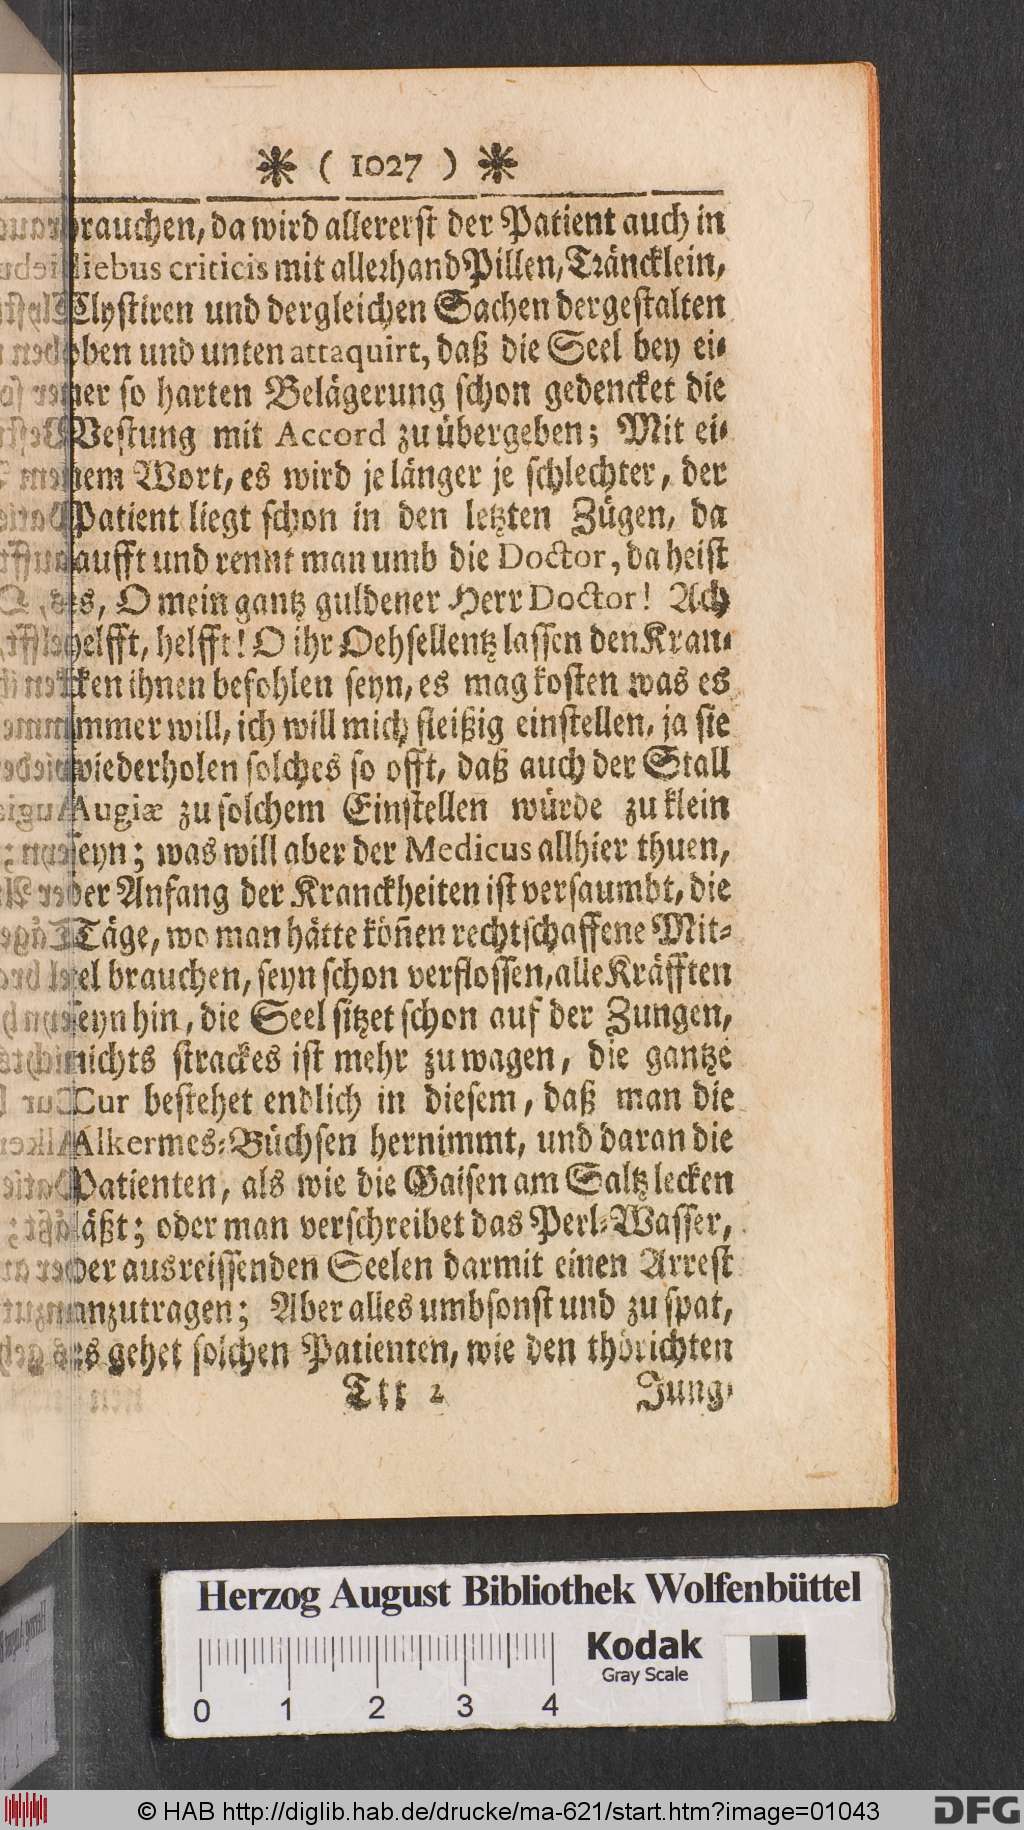 * ( 1027 ) *
brauchen, da wird allererst der Patient auch in
diebus criticis mit allerhand Pillen, Träncklein,
Clystiren und dergleichen Sachen dergestalten
oben und unten attaquirt, daß die Seel bey ei-
ner so harten Belägerung schon gedencket die
Vestung mit Accord zu übergeben; Mit ei-
nem Wort, es wird je länger je schlechter, der
Patient liegt schon in den letzten Zügen, da
laufft und rennt man umb die Doctor, da heist
es, O mein gantz guldener Herr Doctor! Ach
helfft, helfft! O ihr Oehsellentz lassen den Kran-
cken ihnen befohlen seyn, es mag kosten was es
immer will, ich will mich fleißig einstellen, ja sie
wiederholen solches so offt, daß auch der Stall
Augiæ zu solchem Einstellen würde zu klein
seyn; was will aber der Medicus allhier thuen,
der Anfang der Kranckheiten ist versaumbt, die
Täge, wo man hätte köñen rechtschaffene Mit-
tel brauchen, seyn schon verflossen, alle Kräfften
seyn hin, die Seel sitzet schon auf der Zungen,
nichts strackes ist mehr zu wagen, die gantze
Cur bestehet endlich in diesem, daß man die
Alkermes-Büchsen hernimmt, und daran die
Patienten, als wie die Gaisen am Saltz lecken
läßt; oder man verschreibet das Perl-Wasser,
der ausreissenden Seelen darmit einen Arrest
anzutragen; Aber alles umbsonst und zu spat,
es gehet solchen Patienten, wie den thörichten
Ttt 2 Jung-
Herzog August Bibliothek Wolfenbüttel
Kodak
Gray Scale
0 1 2 3 4
© HAB http://diglib.hab.de/drucke/ma-621/start.htm?image=01043
DFG